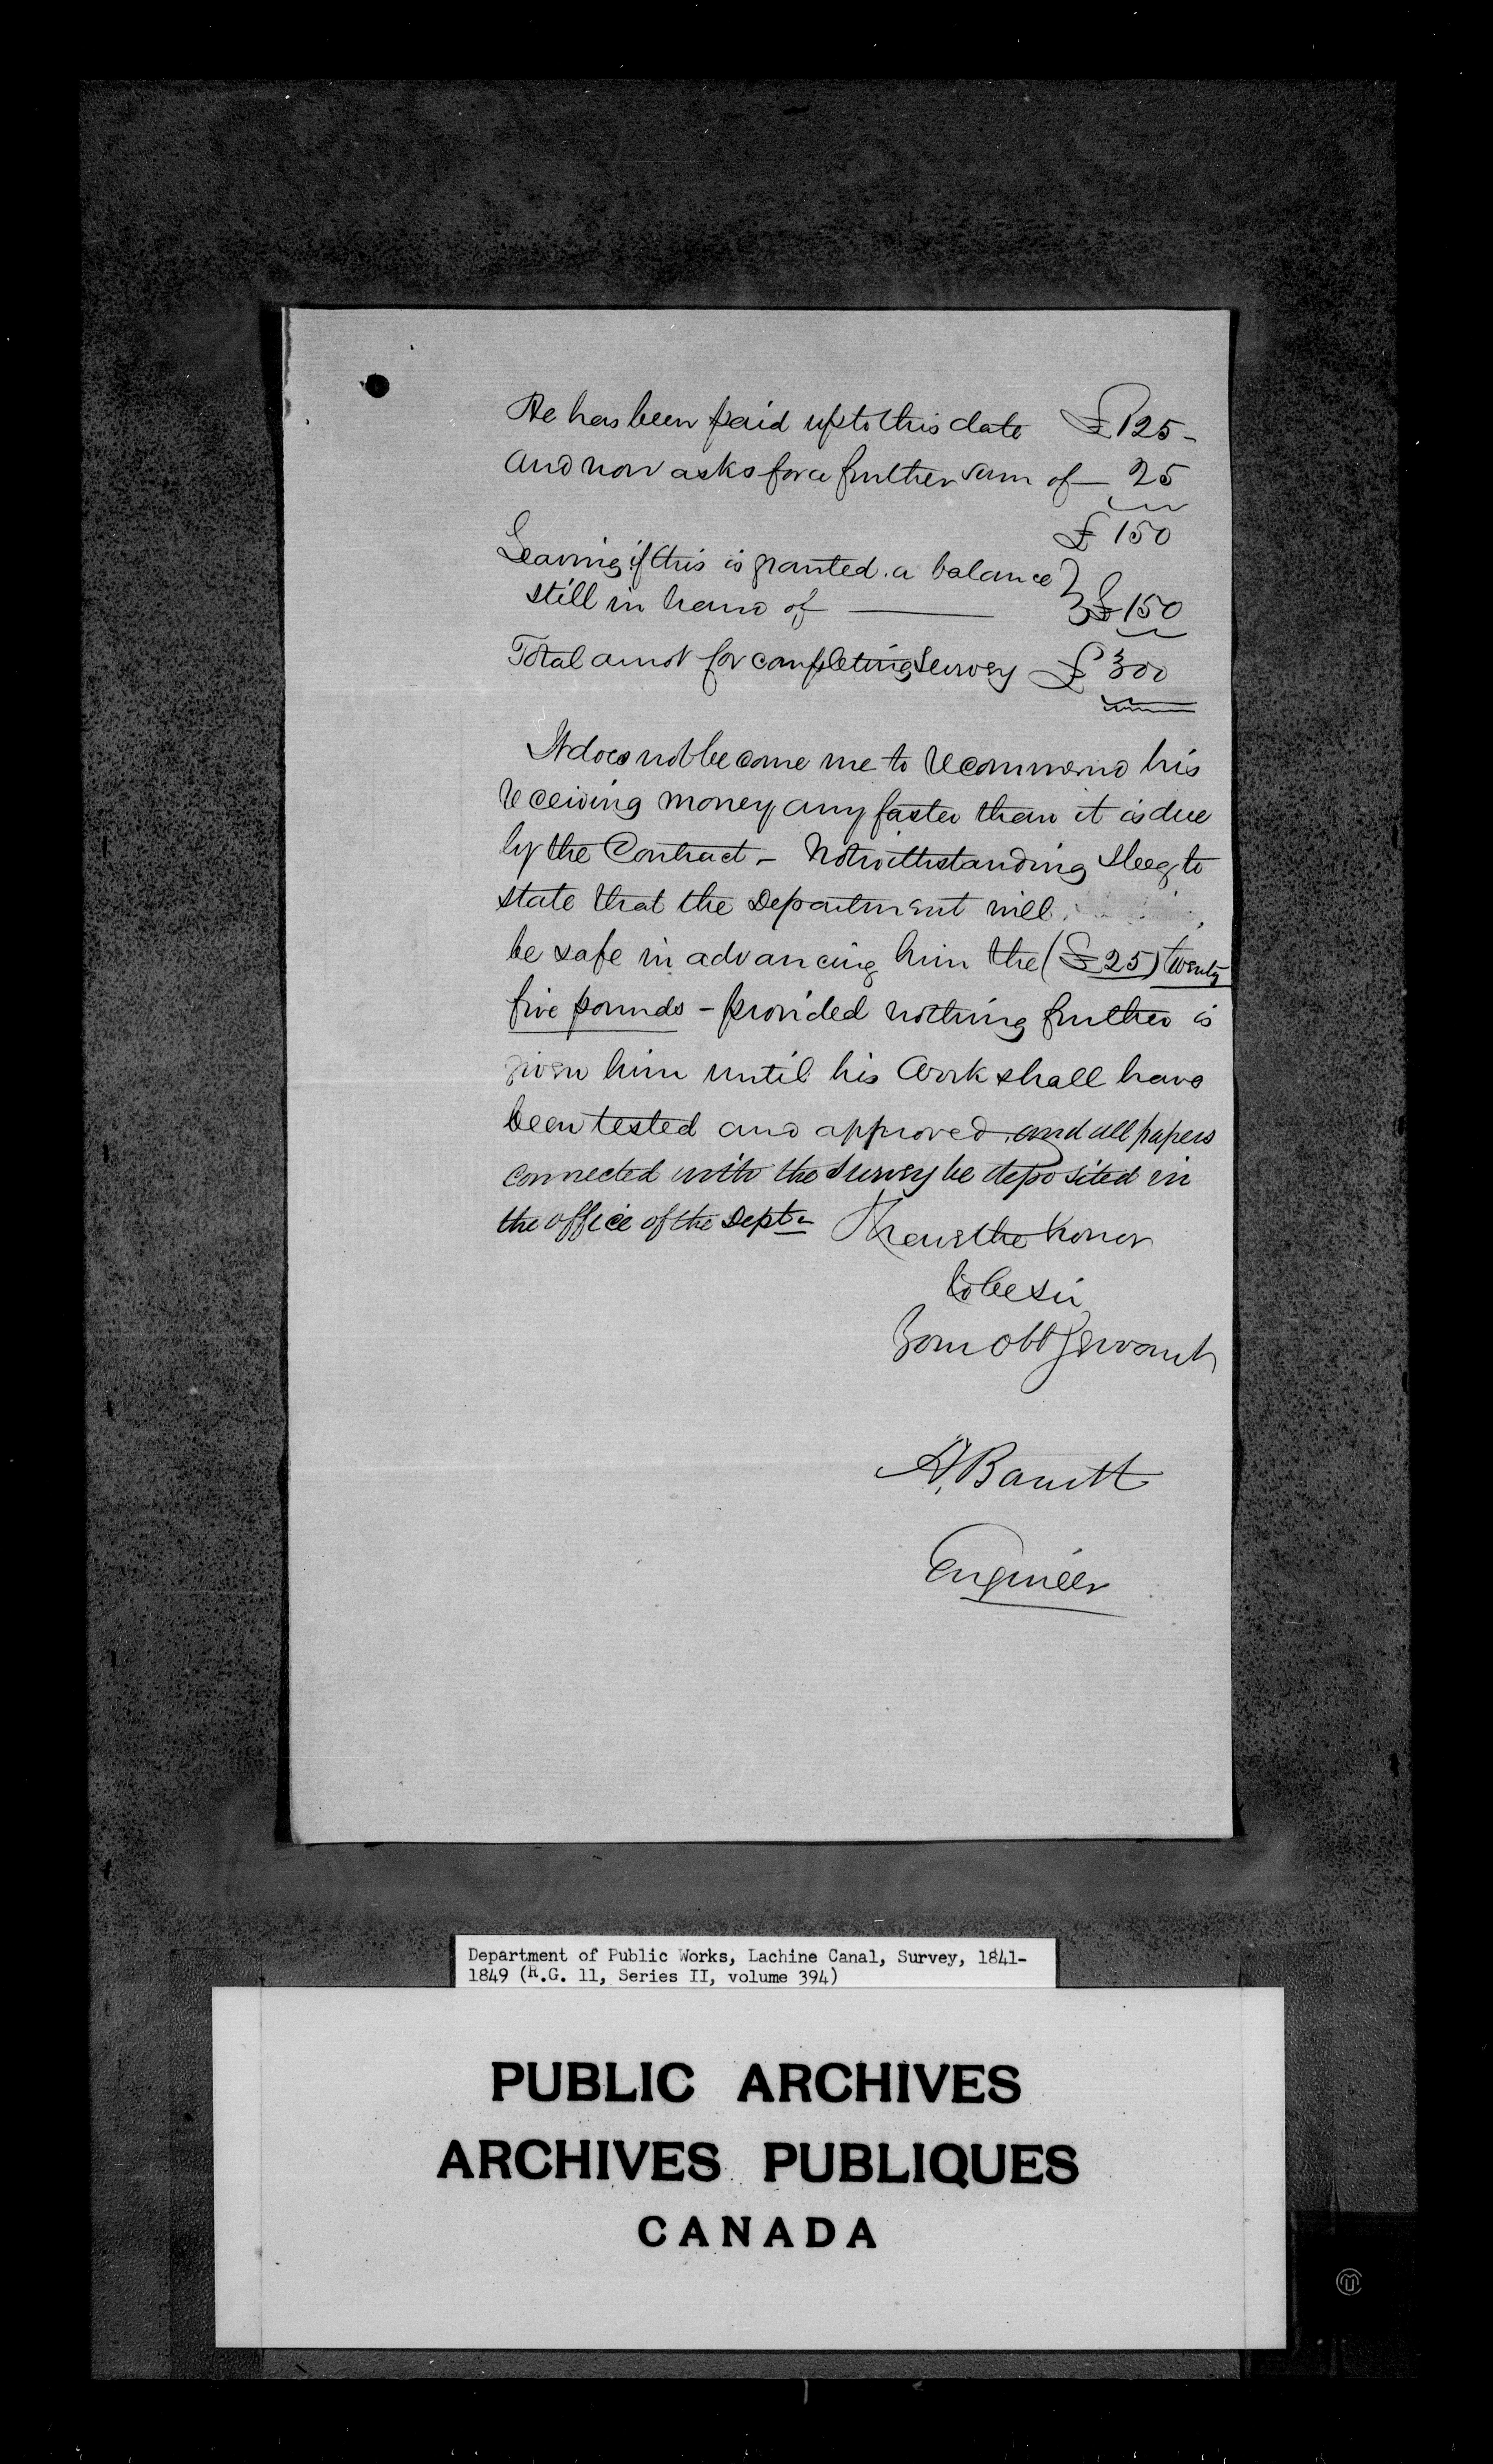 He has been paid up to this date £125-
and now asks for a further sum of — 25
£150
Leaving if this is granted. a balance }
still in hand of —— £150
Total amot for completing Survey £300
It does not become me to recommend his
receiving money any faster than it is due
by the Contract - Notwithstanding I beg to
state that the Department will
be safe in advancing him the (£25) twenty
five pounds - provided nothing further is
given him until his work shall have
been tested and approved, and all papers
connected with the Survey be deposited in
the office of the Dept.
I have the honor
to be Sir
Your Obt Servant
A, Barrett
Engineer
Department of Public Works, Lachine Canal, Survey, 1841-
1849 (R.G. 11, Series II, volume 394)
PUBLIC ARCHIVES
ARCHIVES PUBLIQUES
CANADA